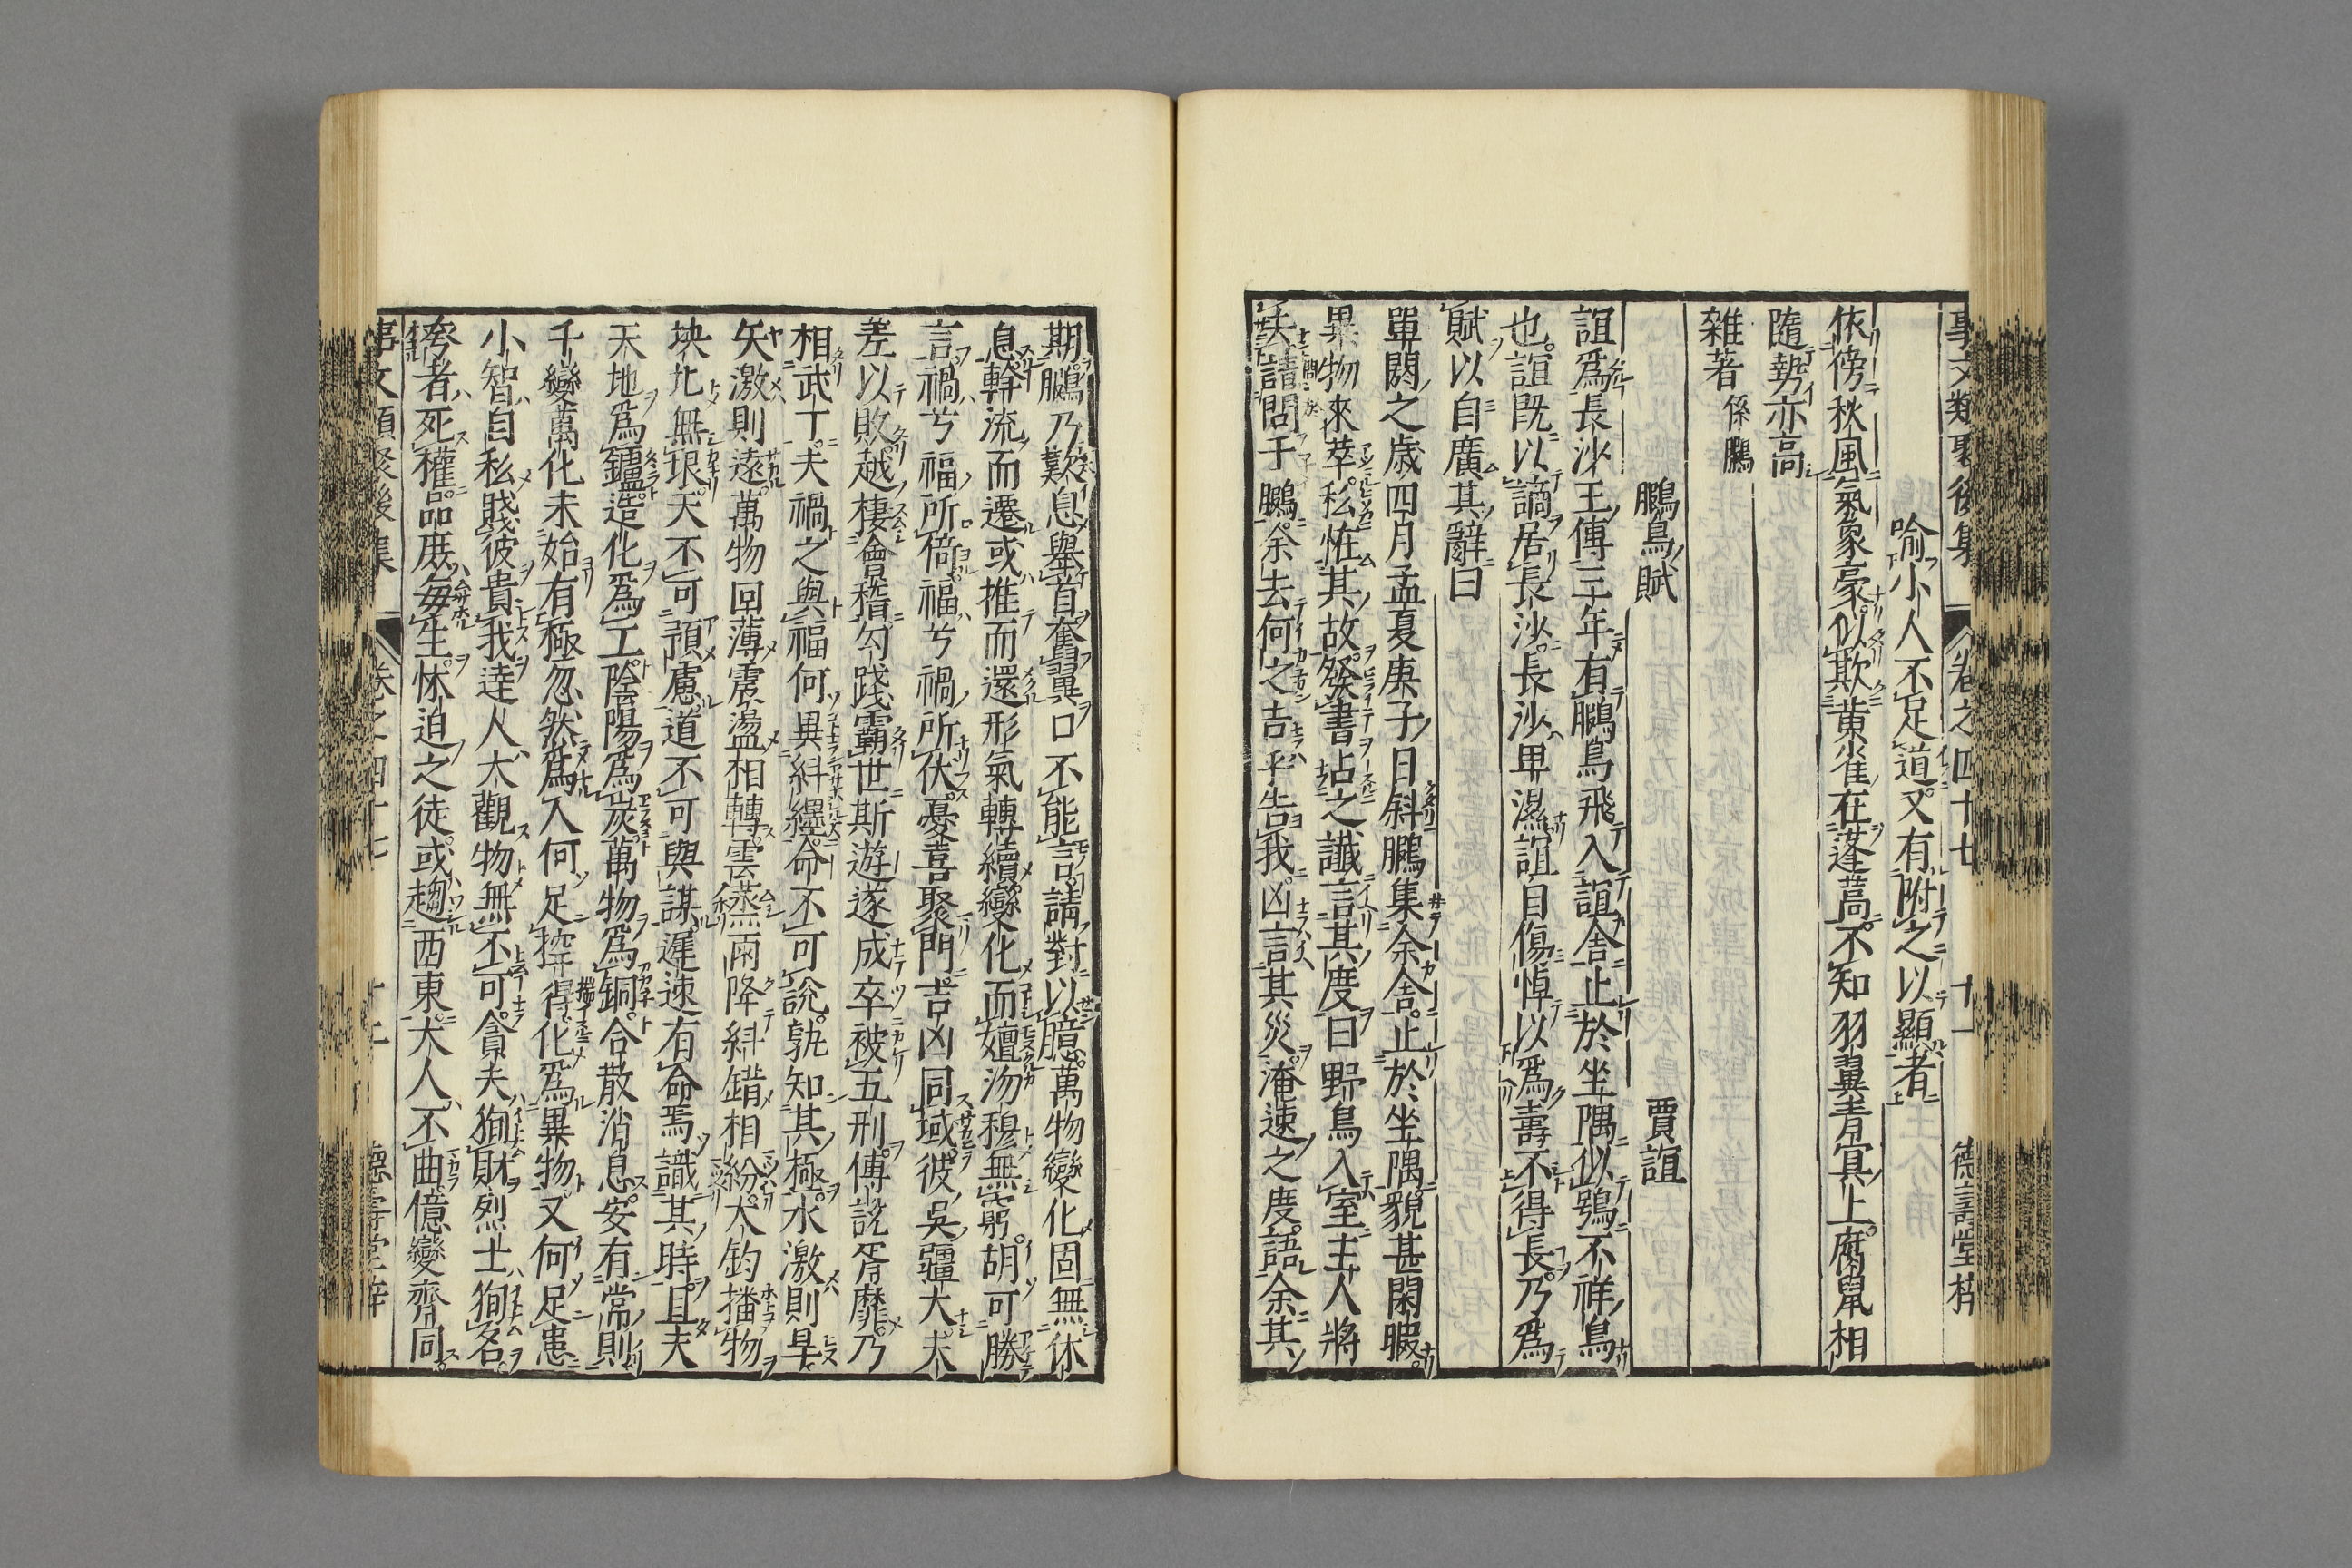 事文類聚後集 卷之四十七 十一 德壽堂梓
喻小人不足道又有附之以顯者
依傍秋風氣象豪似欺黄雀在蓬蒿不知羽翼青冥上腐鼠相
隨勢亦高
雜著 係鵩
鵩鳥賦 賈誼
誼爲長沙王傅三年有鵩鳥飛入誼舍止於坐隅似鴞不祥鳥
也誼既以謫居長沙長沙卑濕誼自傷悼以爲壽不得長乃爲
賦以自廣其辭曰
單閼之歳四月孟夏庚子日斜鵩集余舍止於坐隅貌甚閑暇
異物來萃私恠其故發書占之讖言其度曰野鳥入室主人將
去請問于鵩余去何之吉乎告我凶言其災淹速之度語余其
期鵩乃歎息舉首奮翼口不能言請對以臆萬物變化固無休
息斡流而遷或推而還形氣轉續變化而嬗沕穆無窮胡可勝
言禍兮福所倚福兮禍所伏憂喜聚門吉凶同域彼吳疆大夫
差以敗越棲會稽勾踐霸世斯遊遂成卒被五刑傅說胥靡乃
相武丁夫禍之與福何異糾纆命不可說孰知其極水激則旱
矢激則遠萬物回薄震盪相轉雲蒸雨降糾錯相紛大鈞播物
坱圠無垠天不可預慮道不可與謀遲速有命焉識其時且夫
天地爲鑪造化爲工陰陽爲炭萬物爲銅合散消息安有常則
千變萬化未始有極忽然爲人何足控得化爲異物又何足患
小智自私賤彼貴我達人大觀物無不可貪夫狥財烈士狥名
夸者死權品庶每生怵迫之徒或趨西東大人不曲億變齊同
事文類聚後集 卷之四十七 十二 德壽堂梓